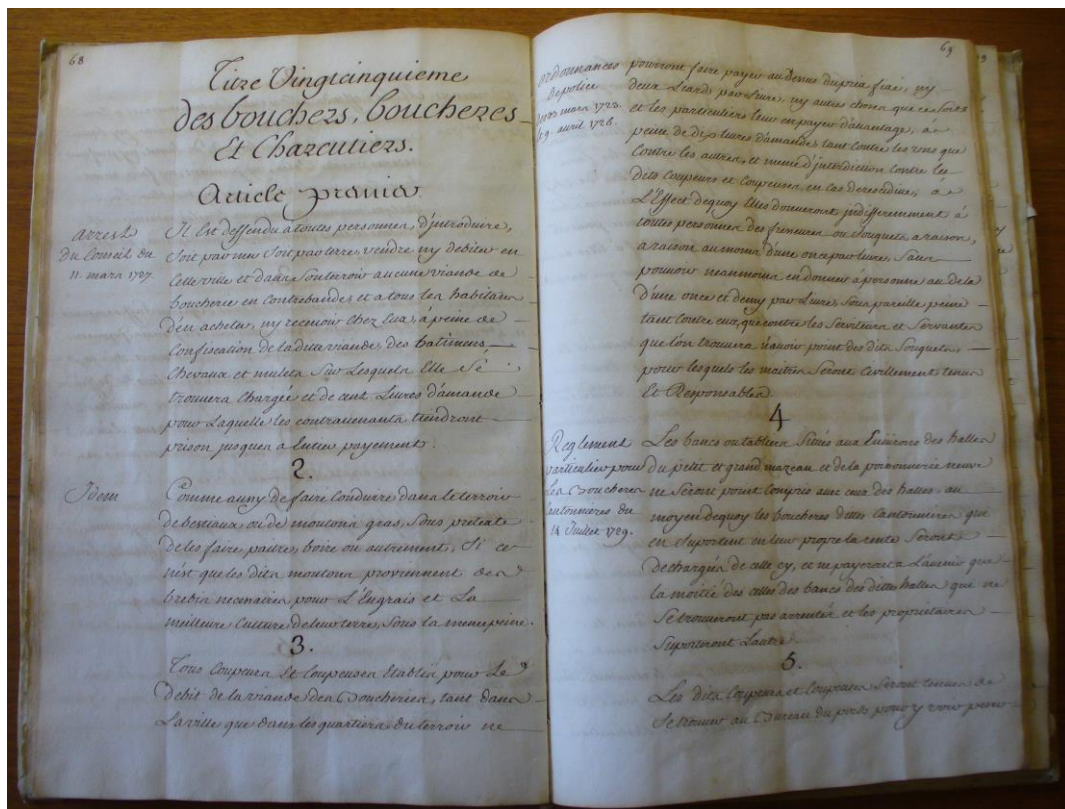 68
Titre Vingtcinquieme
des bouchers, boucheres
Et Charcutiers.
Article premier
Arrest
du Conseil du
11. mars 1727.
Il Est deffendu a toutes personnes, d'introduire,
soit par mer soit par terre, vendre ny debiter en
Cette ville et dans son terroir aucune viande de
boucherie en Contrebande, et a tous les habitans
d'en acheter, ny recevoir chez Eux, à peine de
Confiscation de la ditte viande, des batimens
Chevaux et mulets sur Lesquels Elle sé
trouvera chargée et de cent Livres d'amande
pour Laquelle les contrevenants tiendront
prison jusques a Entier payement.
2.
Idem
Comme aussy de faire Conduire dans le terroir
de bestiaux ou de moutons gras, sous pretexte
de les faire paitre, boire ou autrement, Si ce
n'est que les dits moutons proviennent des
brebis necessaires pour L'Engrais et La
meilleure Culture de leur terre, sous la meme peine.
3.
Tous Coupeurs Et Coupeuses Etablis pour Le
debit de la viande des Boucheries, tant dans
La ville que dans les quartiers du terroir ne
69
ordonnances
de police
du 23 mars 1723.
19. avril 1728.
pourront faire payer au dessus du prix fixé, ny
deux Liards par Livre, ny autres choses que ce soit
et les particuliers leur en payer d'avantage, à
peine de dix livres d'amande, tant contre les uns que
Contre les autres, et meme d'jnterdiction contre les
dits Coupeurs et Coupeuses, en cas de recidive, a
L'Effect dequoy Elles donneront jndifferemment à
toutes personnes des ou souquets a raison,
a raison au moins d'une once par livre, sans
pouvoir neanmoins en donner à personne au dela
d'une once et demy par Livre, sous pareille peine
tant Contre eux, que contre les Serviteurs et Servantes
que l'on trouvera n'avoir point des dits Souquets,
pour lesquels les maitres seront Civillement tenus
Et Responsables.
4
Reglement
particulier pour
Les Boucheres
Cantonnieres du
Juillet 1729.
Les bancs ou tabliers Situés aux Environs des halles
du petit et grand mazeau et de la poissonnerie neuve
ne seront point Compris avec ceux des halles, au
moyen dequoy les boucheres dittes Cantonnieres qui
en Suportent en leur propre la rente Seront
dechargées de celle cy, et ne payeront a L'avenir que
la moitié des celles des bancs des dittes halles qui ne
se trouveront pas arrentés et les proprietaires
suporteront L'autre
5.
Les dits Coupeurs et Coupeuses Seront tenus de
se trouver au Bureau du poids pour y voir peser